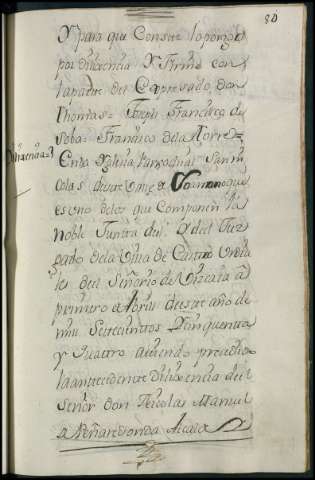 80
Y para que Conste lo pongo
por Dilixencia Y firmo con
la parte del Expresado don
Thomas = Joseph Francisco de
Soba = Francisco dela Torre =
Dilixencia
En la Yglesia Parroquial San ni
colas desde Valle de
es uno delos que Componen la
Noble Junta de Y del Juz
gado dela Villa de Castro Urdia
les del Señorio de Vizcaia à
primero de Abril deeste año de
mill Settecientos Zinquenta
y Quattro aviendo prezedido
la anttezedente Dilixencia del
Señor don Nicolas Manuel
de Peñarredonda Alcalde